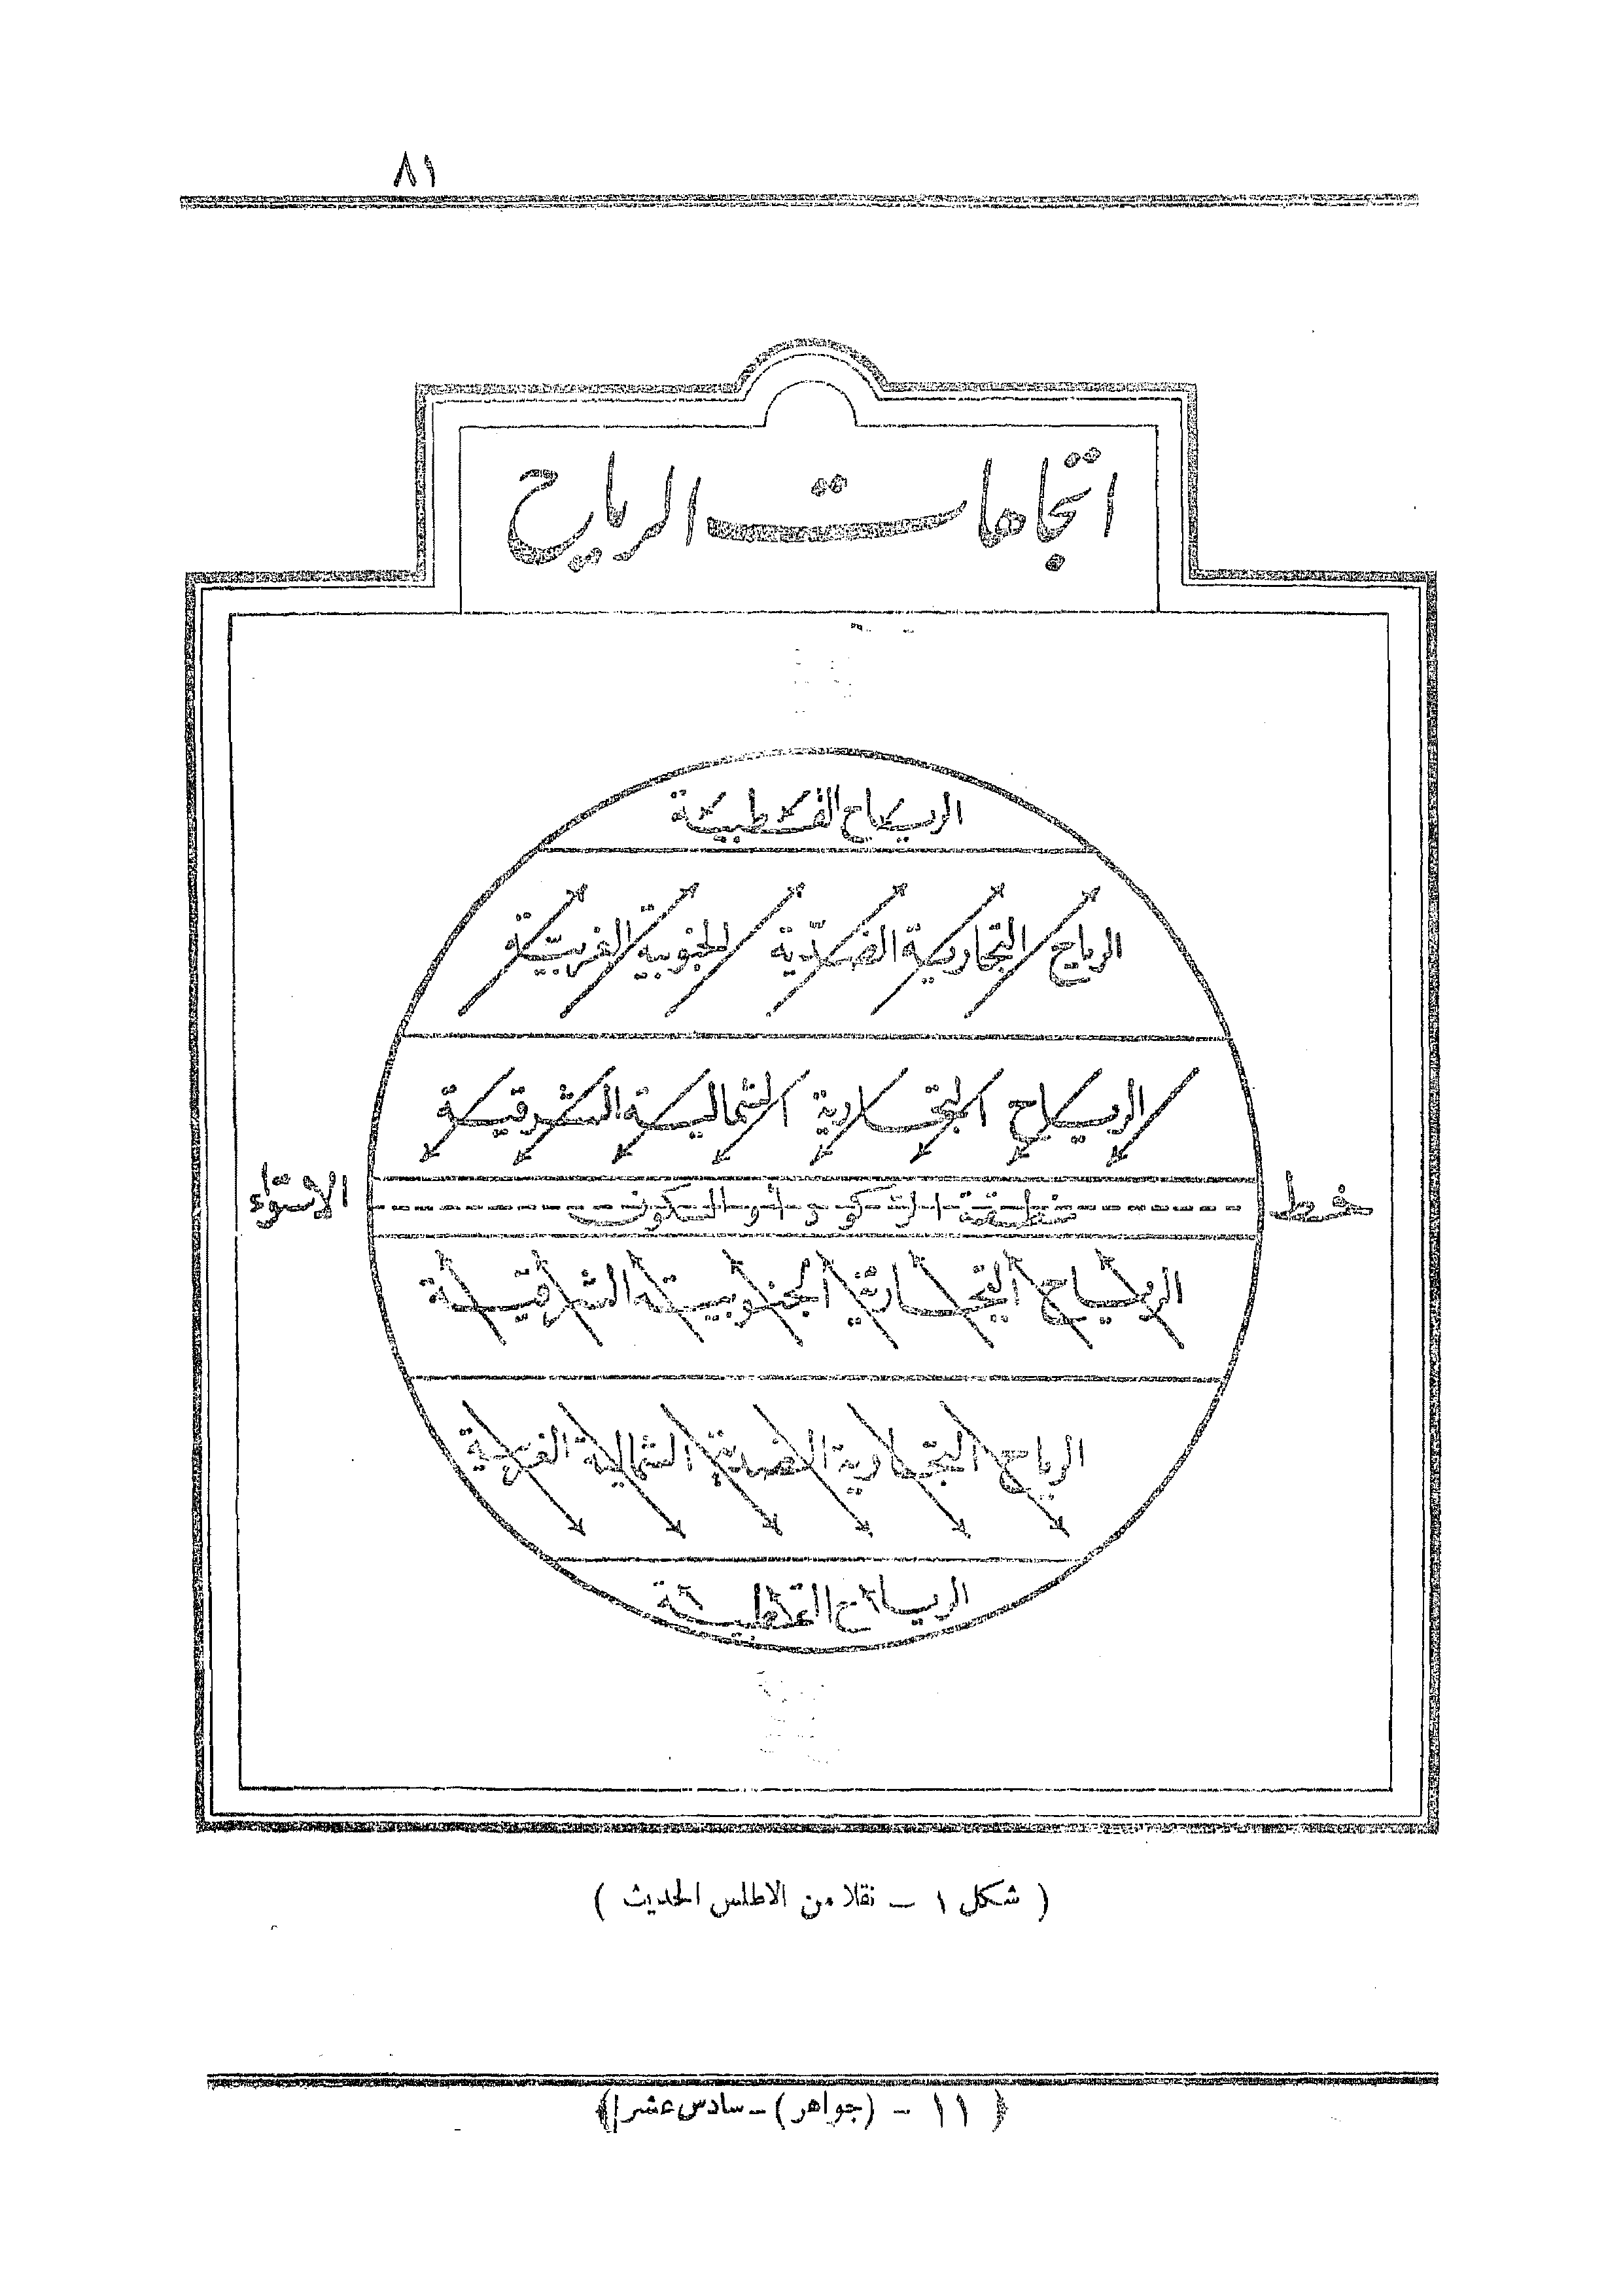 ٨١
اتجاهات الرياح
الرياح القطبية
الرياح التجارية الضدّية الجنوبية الغربيّة
الرياح التجارية الشمالية الشرقية
خط الاستواء
منطقة الركود أو السكون
الرياح التجارية الجنوبية الشرقية
الرياح التجارية الضدية الشمالية الغربية
الرياح القطبية
( شكل ١ – نقلا من الاطلس الحديث )
﴿ ١١ – (جواهر) – سادس عشر ﴾